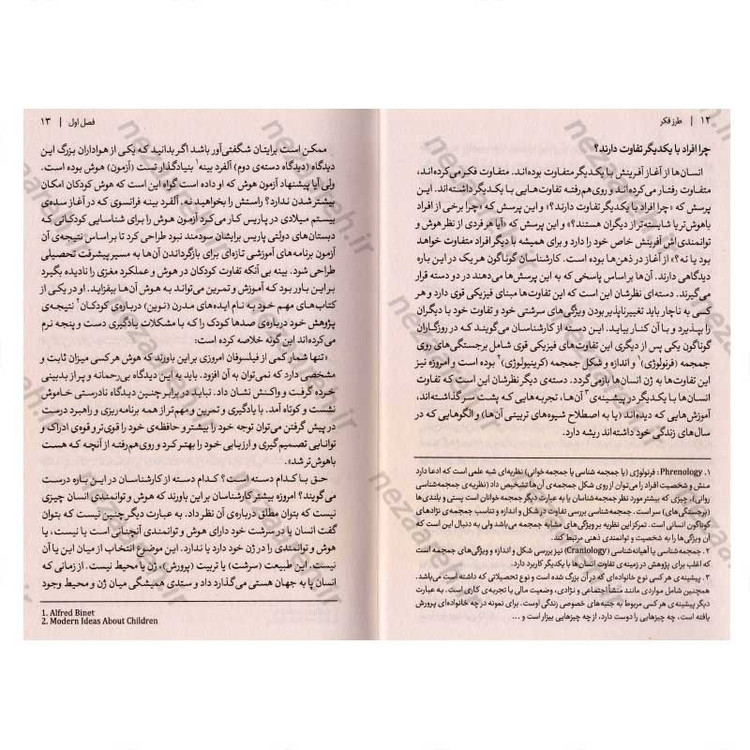 ۱۲ | طرز فکر
چرا افراد با یکدیگر تفاوت دارند؟
انسان‌ها از آغاز آفرینش با یکدیگر متفاوت بوده‌اند. متفاوت فکر می‌کرده‌اند،
متفاوت رفتار می‌کرده‌اند و روی‌هم‌رفته تفاوت‌هایی با یکدیگر داشته‌اند. این
پرسش که «چرا افراد با یکدیگر تفاوت دارند؟» و این پرسش که «چرا برخی از افراد
باهوش‌تر یا شایسته‌تر از دیگران هستند؟» و این پرسش که «آیا هر فردی از نظر هوش و
توانمندی‌اش آفرینش خاص خود را دارد و برای همیشه با دیگر افراد متفاوت خواهد
بود یا نه؟» از آغاز در ذهن‌ها بوده است. کارشناسان گوناگون هر یک در این باره
دیدگاهی دارند. آن‌ها بر اساس پاسخی که به این پرسش‌ها می‌دهند در دو دسته قرار
می‌گیرند. دسته‌ای نظرشان این است که این تفاوت‌ها مبنای فیزیکی قوی دارد و هر
کسی به ناچار باید تغییرناپذیر بودن ویژگی‌های سرشتی خود و تفاوت خود با دیگران
را بپذیرد و با آن کنار بیاید. این دسته از کارشناسان می‌گویند که در روزگاران
گوناگون یکی پس از دیگری این تفاوت‌های فیزیکی قوی شامل برجستگی‌های روی
جمجمه (فرنولوژی)۱ و اندازه و شکل جمجمه (کرینیولوژی)۲ بوده است و امروزه نیز
این تفاوت‌ها به ژن انسان‌ها بازمی‌گردد. دسته‌ی دیگر نظرشان این است که تفاوت
انسان‌ها با یکدیگر در پیشینه‌ی۳ آن‌ها، تجربه‌هایی که پشت سر گذاشته‌اند،
آموزش‌هایی که دیده‌اند (یا به اصطلاح شیوه‌های تربیتی آن‌ها) و الگوهایی که در
سال‌های زندگی خود داشته‌اند ریشه دارد.
۱. Phrenology: فرنولوژی (یا جمجمه شناسی یا جمجمه خوانی) نظریه‌ای شبه علمی است که ادعا دارد
منش و شخصیت افراد را می‌توان از روی شکل جمجمه‌ی آن‌ها تشخیص داد (نظریه‌ی جمجمه‌شناسی
روانی). چیزی که بیشتر مورد نظر جمجمه‌شناسان یا به عبارت دیگر جمجمه خوانان است پستی و بلندی‌ها
(برجستگی‌های) سر است. جمجمه‌شناسی بررسی تفاوت در شکل و اندازه و تناسب جمجمه‌ی نژادهای
گوناگون انسانی است. تمرکز این نظریه بر ویژگی‌های مشابه جمجمه می‌باشد ولی به دنبال این است که
آن ویژگی‌ها را به شخصیت و توانمندی ذهنی مرتبط کند.
۲. جمجمه‌شناسی یا آهیانه‌شناسی (Craniology) نیز بررسی شکل و اندازه و ویژگی‌های جمجمه است
که اغلب برای پژوهش در زمینه‌ی تفاوت انسان‌ها با یکدیگر کاربرد دارد.
۳. پیشینه‌ی هر کسی نوع خانواده‌ای که در آن بزرگ شده است و نوع تحصیلاتی که داشته است می‌باشد.
همچنین شامل مواردی مانند منشأ اجتماعی و نژادی، وضعیت مالی یا تجربه‌ی کاری است. به عبارت
دیگر پیشینه‌ی هر کسی مربوط به جنبه‌های خصوصی زندگی اوست. برای نمونه در چه خانواده‌ای پرورش
یافته است، چه چیزهایی را دوست دارد، از چه چیزهایی بیزار است و ...
فصل اول | ۱۳
ممکن است برایتان شگفتی‌آور باشد اگر بدانید که یکی از هواداران بزرگ این
دیدگاه (دیدگاه دسته‌ی دوم) آلفرد بینه۱ بنیادگذار تست (آزمون) هوش بوده است.
ولی آیا پیشنهاد آزمون هوش که او داده است گواه این است که هوش کودکان امکان
بیشتر شدن ندارد؟ راستش را بخواهید نه. آلفرد بینه فرانسوی که در آغاز سده‌ی
بیستم میلادی در پاریس کار می‌کرد آزمون هوش را برای شناسایی کودکانی که
دبستان‌های دولتی پاریس برایشان سودمند نبود طراحی کرد تا بر اساس نتیجه‌ی آن
آزمون برنامه‌های آموزشی تازه‌ای برای بازگرداندن آن‌ها به مسیر پیشرفت تحصیلی
طراحی شود. بینه بی آنکه تفاوت کودکان در هوش و عملکرد مغزی را نادیده بگیرد
بر این باور بود که آموزش و تمرین می‌تواند به هوش آن‌ها بیفزاید. او در یکی از
کتاب‌های مهم خود به نام ایده‌های مدرن (نوین) درباره‌ی کودکان۲ نتیجه‌ی
پژوهش خود درباره‌ی صدها کودک را که با مشکلات یادگیری دست و پنجه نرم
می‌کرده‌اند این گونه خلاصه کرده است:
«تنها شمار کمی از فیلسوفان امروزی بر این باورند که هوش هر کسی میزان ثابت و
مشخصی دارد که نمی‌توان به آن افزود. باید به این دیدگاه بی‌رحمانه و پر از بدبینی
خرده گرفت و واکنش نشان داد. نباید در برابر چنین دیدگاه نادرستی خاموش
نشست و کوتاه آمد. با یادگیری و تمرین و مهم‌تر از همه برنامه‌ریزی و راهبرد درست
در پیش گرفتن می‌توان توجه خود را بیشتر و حافظه‌ی خود را قوی‌تر و قوه‌ی ادراک و
توانایی تصمیم‌گیری و ارزیابی خود را بهتر کرد و روی‌هم‌رفته از آنچه که هست
باهوش‌تر شد».
حق با کدام دسته است؟ کدام دسته از کارشناسان در این باره درست
می‌گویند؟ امروزه بیشتر کارشناسان بر این باورند که هوش و توانمندی انسان چیزی
نیست که بتوان مطلق درباره‌ی آن نظر داد. به عبارت دیگر چنین نیست که بتوان
گفت انسان یا در سرشت خود دارای هوش و توانمندی آنچنانی است یا نیست، یا
هوش و توانمندی را در ژن خود دارد یا ندارد. این موضوع انتخاب از میان این یا آن
نیست، این طبیعت (سرشت) یا تربیت (پرورش)، ژن یا محیط نیست. از زمانی که
انسان پا به جهان هستی می‌گذارد داد و ستدی همیشگی میان ژن و محیط وجود
1. Alfred Binet
2. Modern Ideas About Children
nezaareh.ir